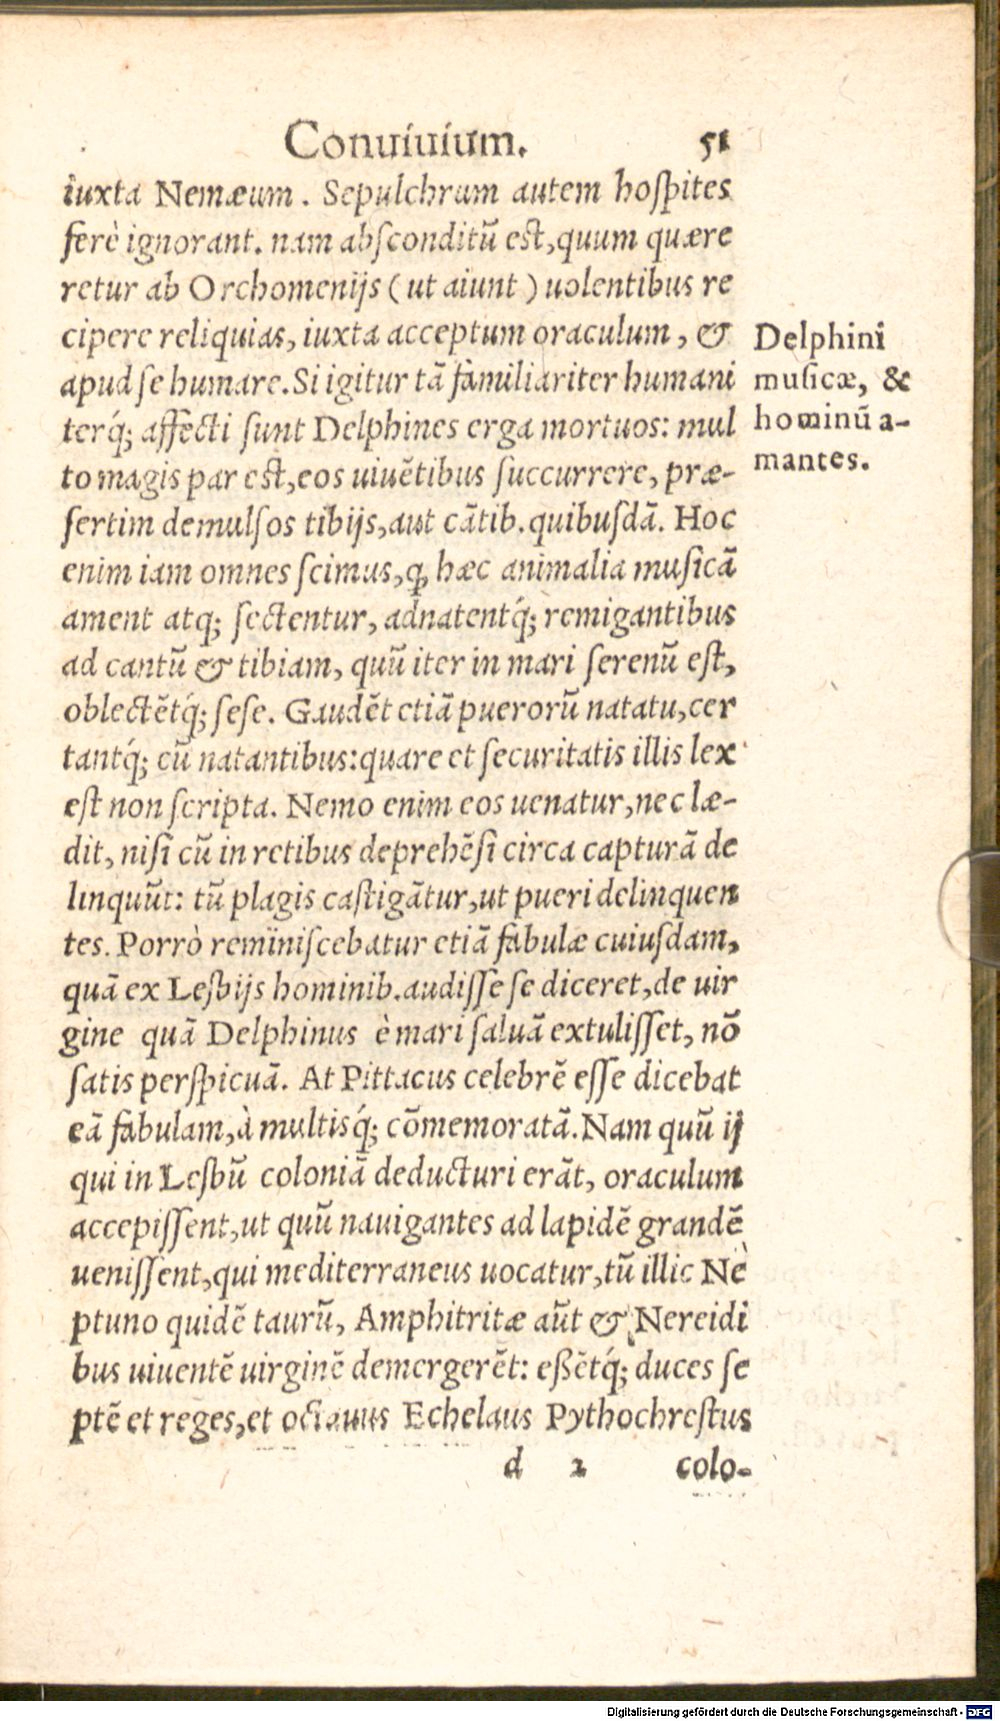 Conuiuium. 51
iuxta Nemæum. Sepulchrum autem hoſpites
ferè ignorant. nam abſconditũ est, quum quære
retur ab Orchomenijs (ut aiunt) uolentibus re
cipere reliquias, iuxta acceptum oraculum, &
apud ſe humare. Si igitur tã familiariter humani
terq́; affecti ſunt Delphines erga mortuos: mul
to magis par est, eos uiuẽtibus ſuccurrere, præ-
ſertim demulſos tibijs, aut cãtib. quibuſdã. Hoc
enim iam omnes ſcimus, ꝙ hæc animalia muſicã
ament atq; ſectentur, adnatentq́; remigantibus
ad cantũ & tibiam, quũ iter in mari ſerenũ eſt,
oblectẽtq́; ſeſe. Gaudẽt etiã puerorũ natatu, cer
tantq́; cũ natantibus: quare et ſecuritatis illis lex
eſt non ſcripta. Nemo enim eos uenatur, nec læ-
dit, niſi cũ in retibus deprehẽſi circa capturã de
linquũt: tũ plagis caſtigãtur, ut pueri delinquen
tes. Porrò reminiſcebatur etiã fabulæ cuiuſdam,
quã ex Leſbijs hominib. audiſſe ſe diceret, de uir
gine quã Delphinus è mari ſaluã extuliſſet, nõ
ſatis perſpicuã. At Pittacus celebrẽ eſſe dicebat
eã fabulam, à multisq́; cõmemoratã. Nam quũ ij
qui in Leſbũ coloniã deducturi erãt, oraculum
accepiſſent, ut quũ nauigantes ad lapidẽ grandẽ
ueniſſent, qui mediterraneus uocatur, tũ illic Ne
ptuno quidẽ taurũ, Amphitritæ aũt & Nereidi
bus uiuentẽ uirginẽ demergerẽt: eßẽtq́; duces ſe
ptẽ et reges, et octauus Echelaus Pythochreſtus
d 2 colo-
Delphini
muſicæ, &
hominũ a-
mantes.
Digitalisierung gefördert durch die Deutsche Forschungsgemeinschaft - DFG